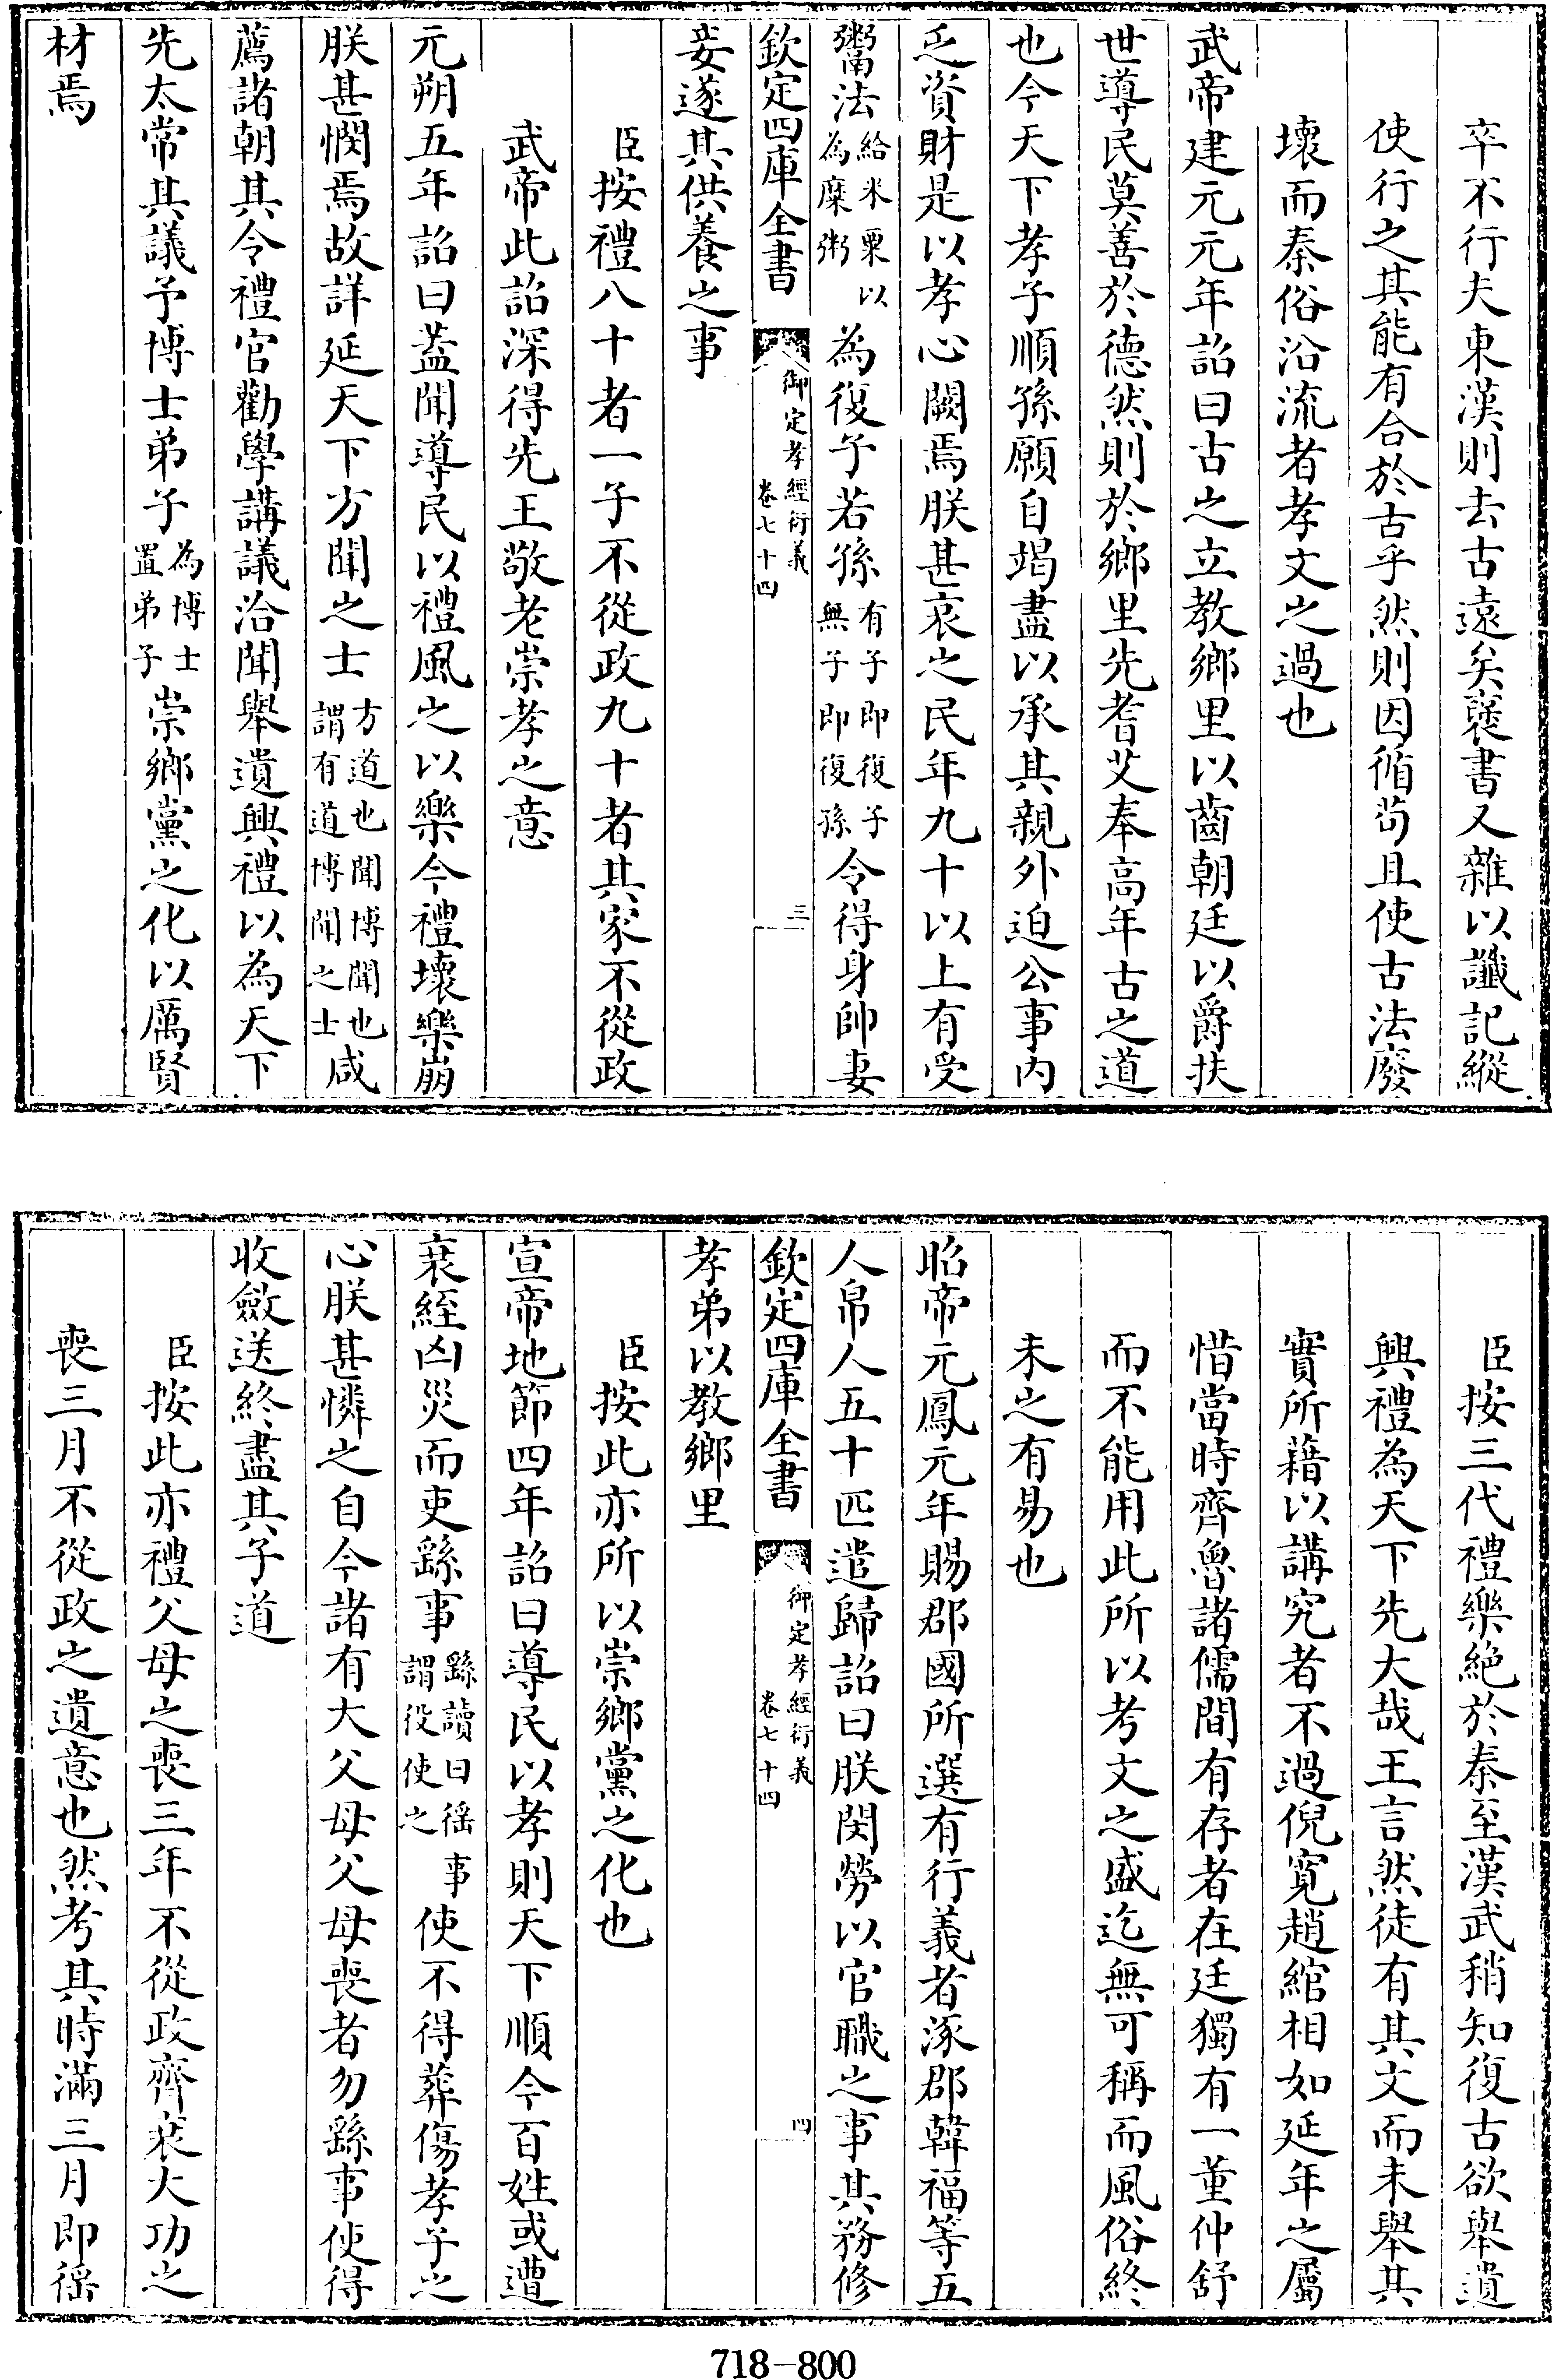 卒不行夫東漢則去古遠矣襃書又雜以讖記縱
使行之其能有合於古乎然則因循苟且使古法廢
壞而秦俗沿流者孝文之過也
武帝建元元年詔曰古之立教鄉里以齒朝廷以爵扶
世導民莫善於德然則於鄉里先耆艾奉高年古之道
也今天下孝子順孫願自竭盡以承其親外迫公事內
乏資財是以孝心闕焉朕甚哀之民年九十以上有受
鬻法給米粟以為糜粥為復子若孫有子即復子無子即復孫令得身帥妻
欽定四庫全書 御定孝經衍義 卷七十四 三
妾遂其供養之事
臣按禮八十者一子不從政九十者其家不從政
武帝此詔深得先王敬老崇孝之意
元朔五年詔曰蓋聞導民以禮風之以樂今禮壞樂崩
朕甚憫焉故詳延天下方聞之士方道也聞博聞也謂有道博聞之士咸
薦諸朝其令禮官勸學講議洽聞舉遺興禮以為天下
先太常其議予博士弟子為博士置弟子崇鄉黨之化以厲賢
材焉
臣按三代禮樂絶於秦至漢武稍知復古欲舉遺
興禮為天下先大哉王言然徒有其文而未舉其
實所藉以講究者不過倪寬趙綰相如延年之屬
惜當時齊魯諸儒間有存者在廷獨有一董仲舒
而不能用此所以考文之盛迄無可稱而風俗終
未之有易也
昭帝元鳳元年賜郡國所選有行義者涿郡韓福等五
人帛人五十匹遣歸詔曰朕閔勞以官職之事其務修
欽定四庫全書 御定孝經衍義 卷七十四 四
孝弟以教鄉里
臣按此亦所以崇鄉黨之化也
宣帝地節四年詔曰導民以孝則天下順今百姓或遭
衰絰凶災而吏繇事繇讀曰徭事謂役使之使不得葬傷孝子之
心朕甚憐之自今諸有大父母父母喪者勿繇事使得
收斂送終盡其子道
臣按此亦禮父母之喪三年不從政齊衰大功之
喪三月不從政之遺意也然考其時滿三月即徭
718-800